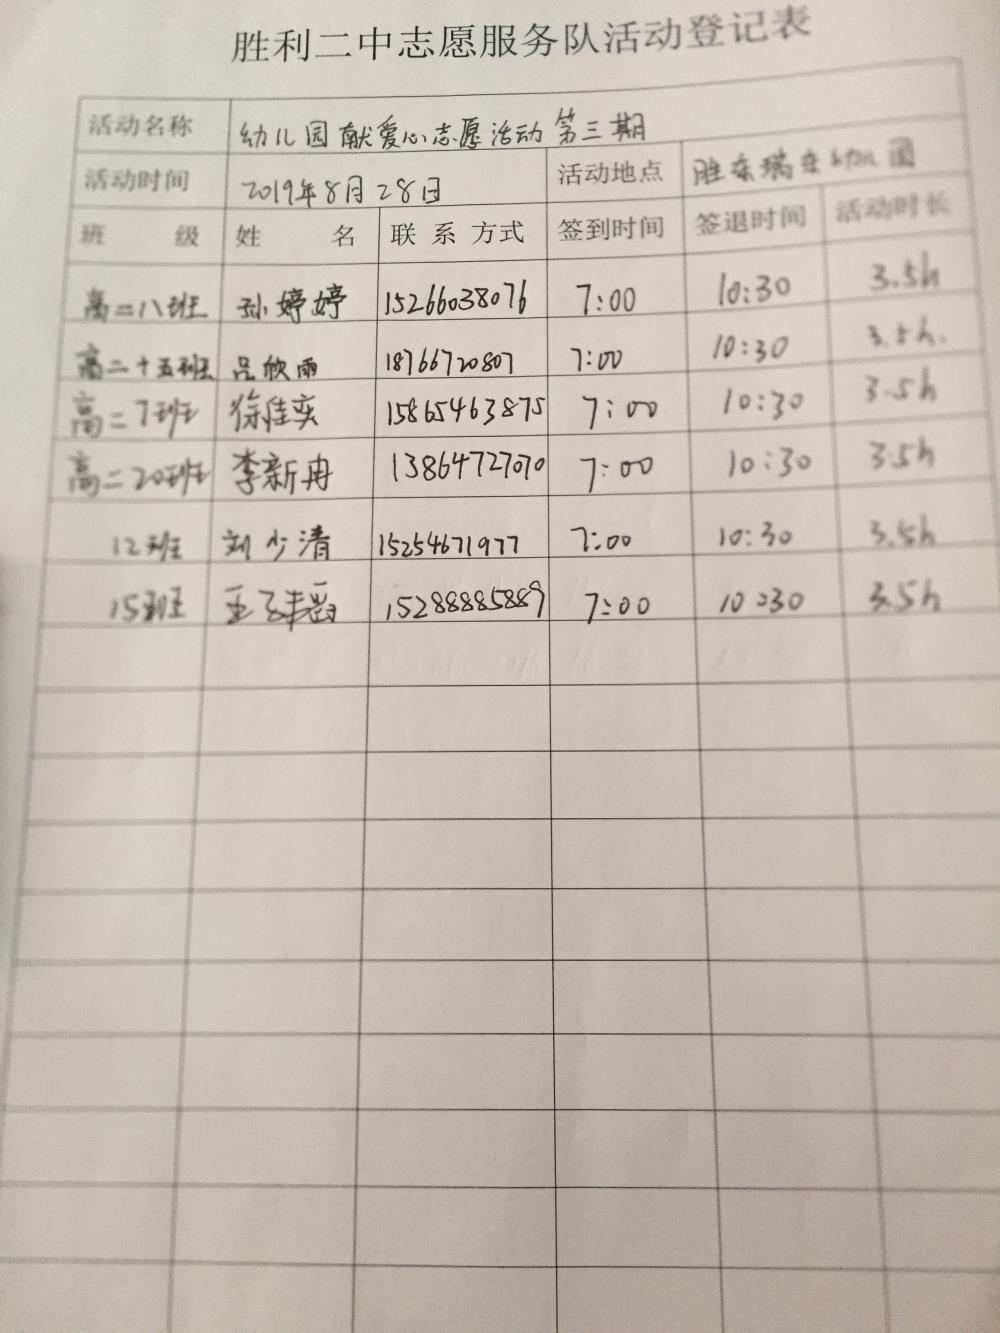 胜利二中志愿服务队活动登记表
活动名称 幼儿园献爱心志愿活动第三期
活动时间 2019年8月28日 活动地点 胜东瑞幼儿园
班 级 姓 名 联 系 方式 签到时间 签退时间 活动时长
高二八班 孙婷婷 15266038076 7:00 10:30 3.5h
高二十五班 吕欣雨 18766720807 7:00 10:30 3.5h.
高二7班 徐佳奕 15865463875 7:00 10:30 3.5h
高二20班 李新冉 13864727070 7:00 10:30 3.5h
12班 刘少清 15254671977 7:00 10:30 3.5h
15班 王 15288885889 7:00 10:30 3.5h